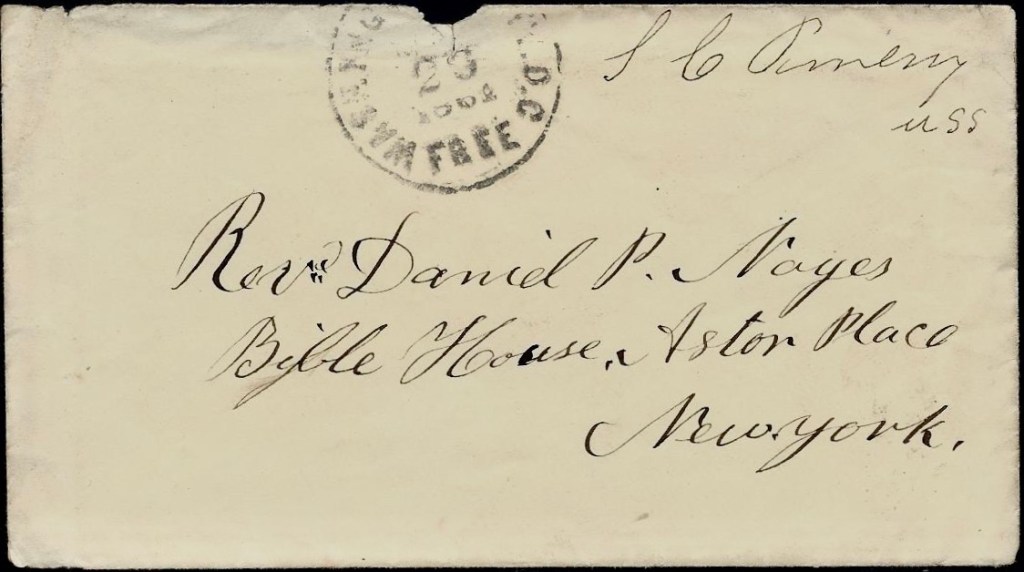 S C Pomeroy
USS
WASHINGTON D.C.
FREE
Revd Daniel P. Noyes
Bible House, Astor Place
New York.